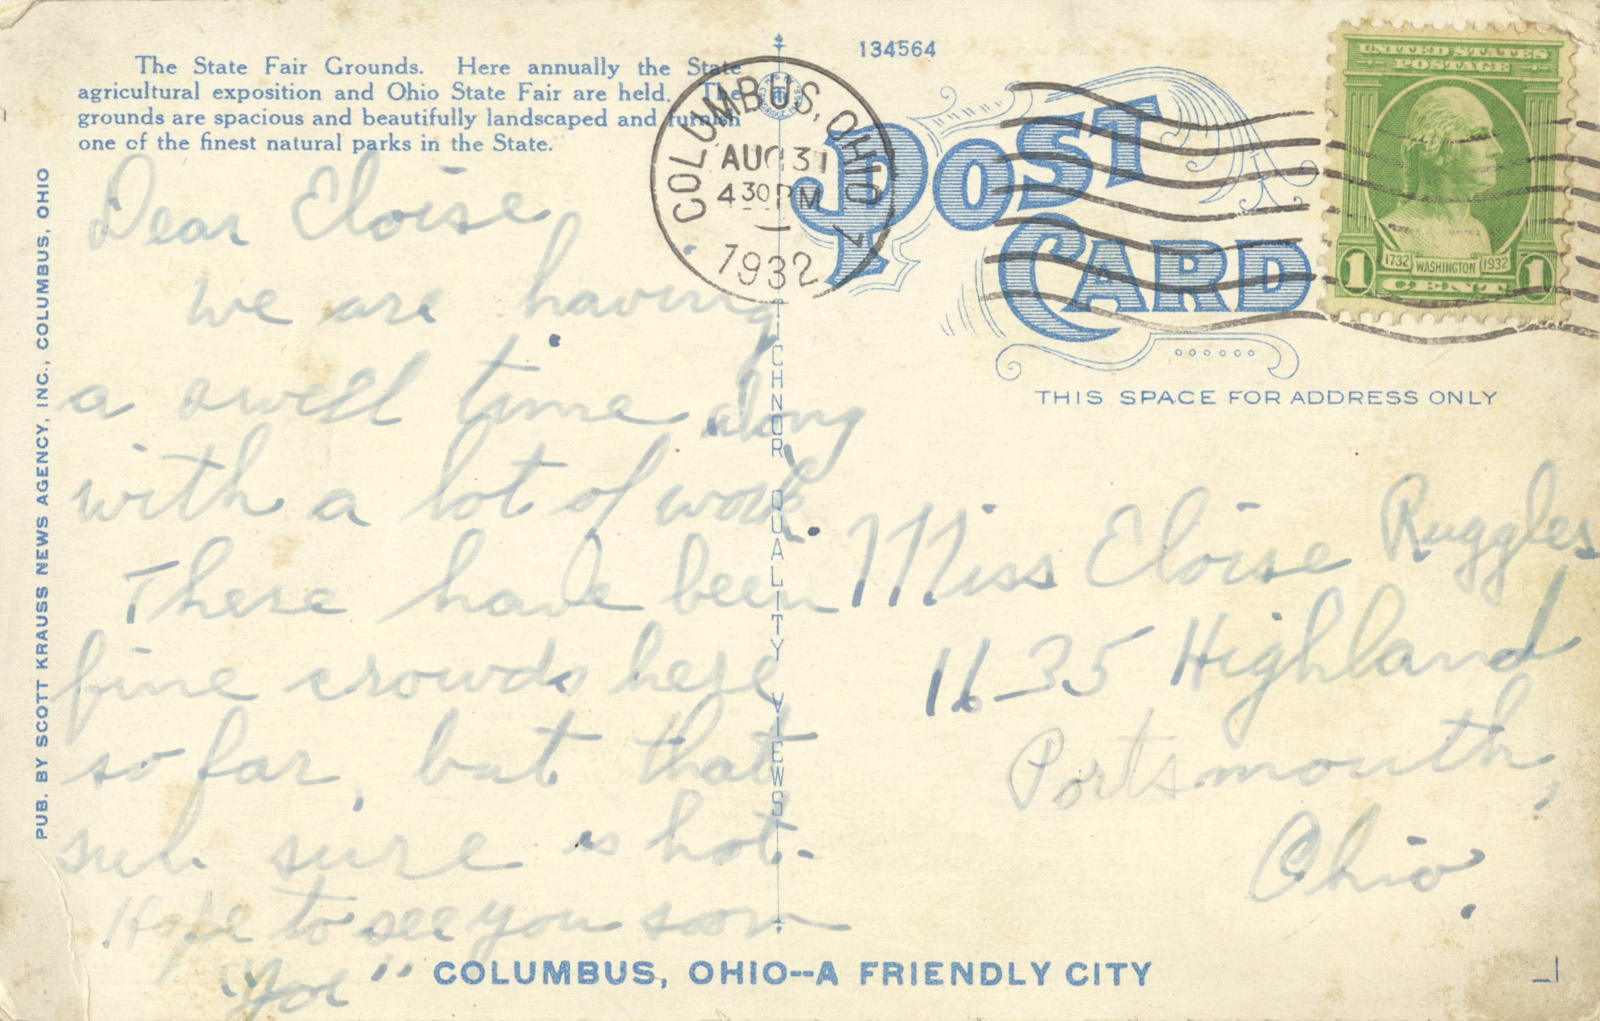 The State Fair Grounds. Here annually the State
agricultural exposition and Ohio State Fair are held. The
grounds are spacious and beautifully landscaped and furnish
one of the finest natural parks in the State.
134564
COLUMBUS, OHIO
AUG 31
4 30 PM
1932
POST
CARD
UNITED STATES
POSTAGE
1732 WASHINGTON 1932
1 CENT 1
THIS SPACE FOR ADDRESS ONLY
PUB. BY SCOTT KRAUSS NEWS AGENCY, INC., COLUMBUS, OHIO
TICHNOR QUALITY VIEWS
Dear Eloise
We are having
a swell time along
with a lot of work
There have been
fine crowds here
so far, but that
sure is hot.
Hope to see you soon
"Joe"
Miss Eloise Ruggles
1135 Highland
Portsmouth,
Ohio.
COLUMBUS, OHIO--A FRIENDLY CITY